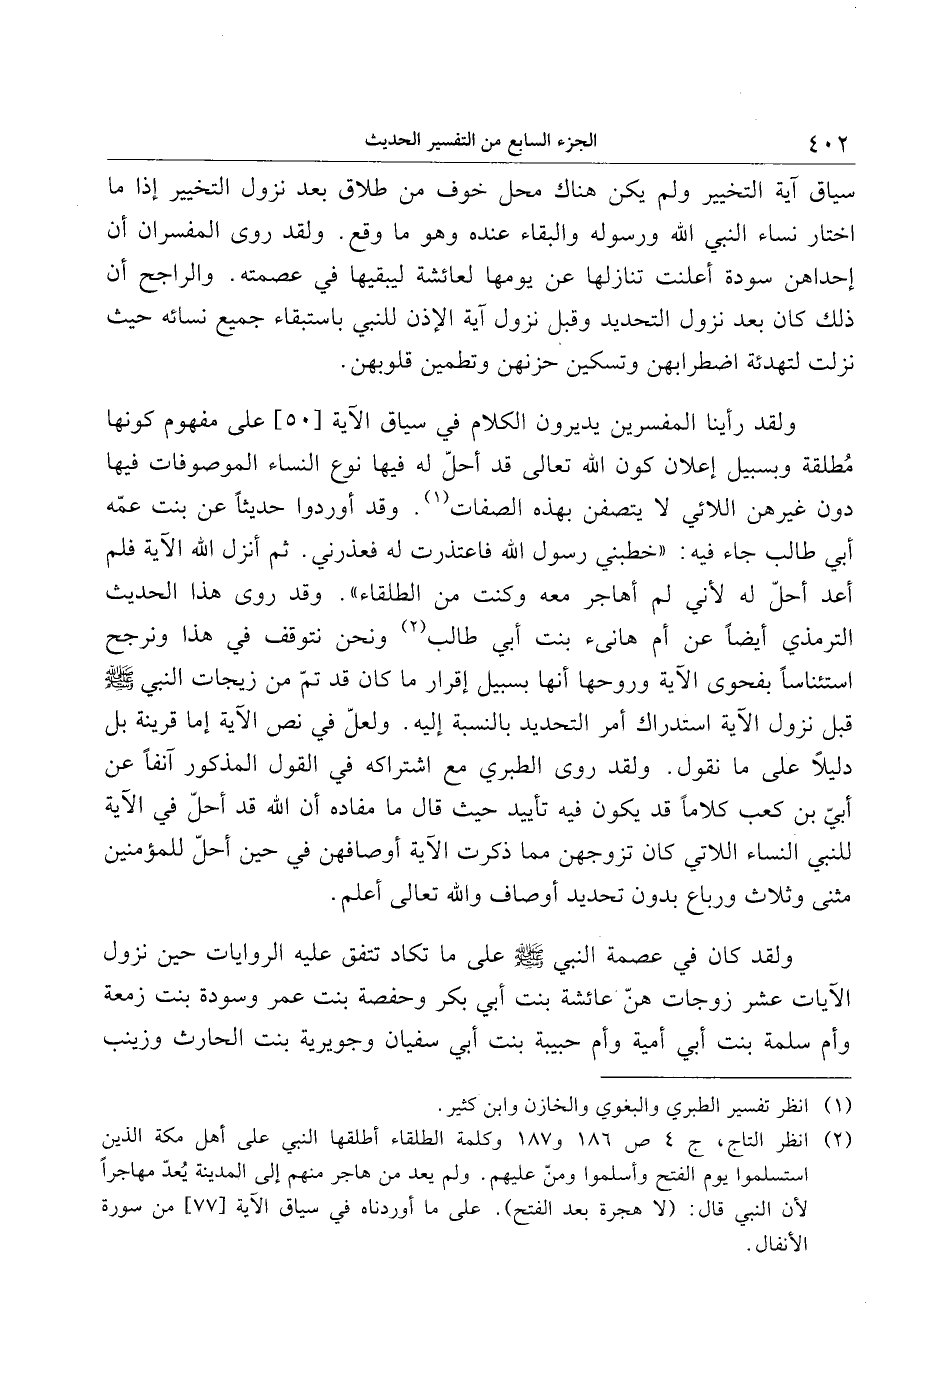 ٤٠٢ الجزء السابع من التفسير الحديث
سياق آية التخيير ولم يكن هناك محل خوف من طلاق بعد نزول التخيير إذا ما
اختار نساء النبي الله ورسوله والبقاء عنده وهو ما وقع. ولقد روى المفسران أن
إحداهن سودة أعلنت تنازلها عن يومها لعائشة ليبقيها في عصمته. والراجح أن
ذلك كان بعد نزول التحديد وقبل نزول آية الإذن للنبي باستبقاء جميع نسائه حيث
نزلت لتهدئة اضطرابهن وتسكين حزنهن وتطمين قلوبهن.
ولقد رأينا المفسرين يديرون الكلام في سياق الآية [٥٠] على مفهوم كونها
مُطلقة وبسبيل إعلان كون الله تعالى قد أحلّ له فيها نوع النساء الموصوفات فيها
دون غيرهن اللائي لا يتصفن بهذه الصفات(١). وقد أوردوا حديثاً عن بنت عمّه
أبي طالب جاء فيه: «خطبني رسول الله فاعتذرت له فعذرني. ثم أنزل الله الآية فلم
أعد أحلّ له لأني لم أهاجر معه وكنت من الطلقاء». وقد روى هذا الحديث
الترمذي أيضاً عن أم هانىء بنت أبي طالب(٢) ونحن نتوقف في هذا ونرجح
استئناساً بفحوى الآية وروحها أنها بسبيل إقرار ما كان قد تمّ من زيجات النبي ﷺ
قبل نزول الآية استدراك أمر التحديد بالنسبة إليه. ولعلّ في نص الآية إما قرينة بل
دليلاً على ما نقول. ولقد روى الطبري مع اشتراكه في القول المذكور آنفاً عن
أبيّ بن كعب كلاماً قد يكون فيه تأييد حيث قال ما مفاده أن الله قد أحلّ في الآية
للنبي النساء اللاتي كان تزوجهن مما ذكرت الآية أوصافهن في حين أحلّ للمؤمنين
مثنى وثلاث ورباع بدون تحديد أوصاف والله تعالى أعلم.
ولقد كان في عصمة النبي ﷺ على ما تكاد تتفق عليه الروايات حين نزول
الآيات عشر زوجات هنّ عائشة بنت أبي بكر وحفصة بنت عمر وسودة بنت زمعة
وأم سلمة بنت أبي أمية وأم حبيبة بنت أبي سفيان وجويرية بنت الحارث وزينب
(١) انظر تفسير الطبري والبغوي والخازن وابن كثير.
(٢) انظر التاج، ج ٤ ص ١٨٦ و١٨٧ وكلمة الطلقاء أطلقها النبي على أهل مكة الذين
استسلموا يوم الفتح وأسلموا ومنّ عليهم. ولم يعد من هاجر منهم إلى المدينة يُعدّ مهاجراً
لأن النبي قال: (لا هجرة بعد الفتح). على ما أوردناه في سياق الآية [٧٧] من سورة
الأنفال.